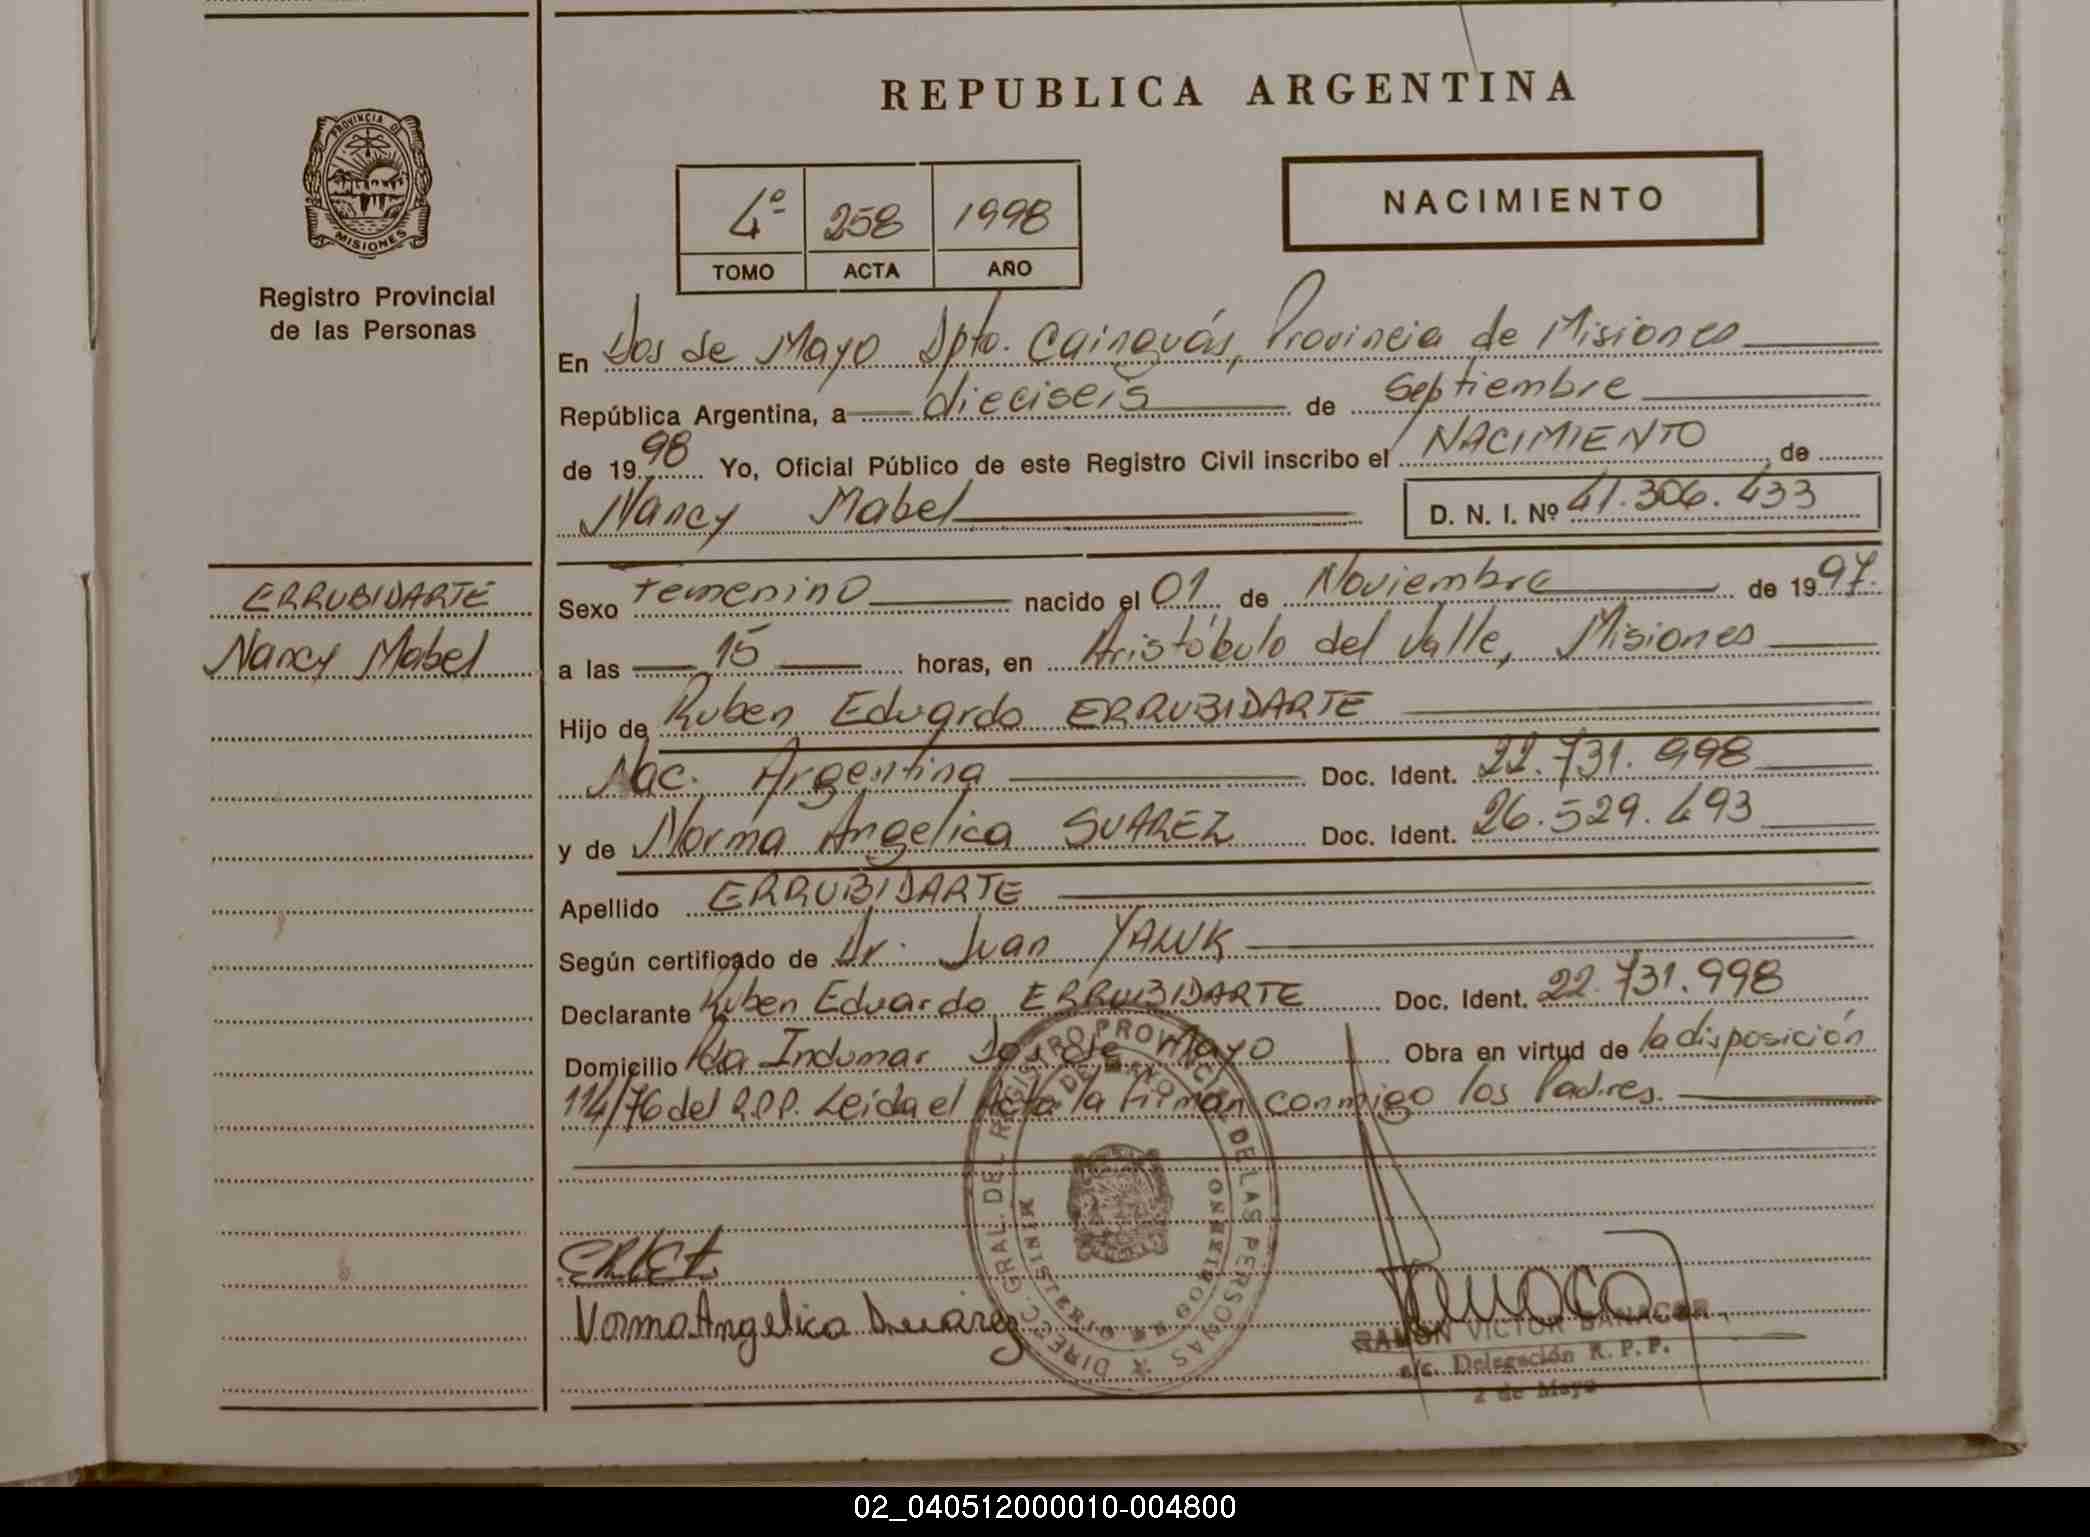 REPUBLICA ARGENTINA
PROVINCIA DE
MISIONES
Registro Provincial
de las Personas
4º 258 1998
TOMO ACTA AÑO
NACIMIENTO
En Dos de Mayo Dpto. Cainguás, Provincia de Misiones
República Argentina, a dieciseis de Septiembre
de 1998 Yo, Oficial Público de este Registro Civil inscribo el NACIMIENTO, de
Nancy Mabel D. N. I. Nº 41.306.433
ERRUBIDARTE
Nancy Mabel
Sexo Femenino nacido el 01 de Noviembre de 1997.
a las 15 horas, en Aristóbulo del Valle, Misiones
Hijo de Ruben Eduardo ERRUBIDARTE
Nac. Argentina Doc. Ident. 22.731.998
y de Norma Angelica SUAREZ Doc. Ident. 26.529.493
Apellido ERRUBIDARTE
Según certificado de Dr. Juan YALUK
Declarante Ruben Eduardo ERRUBIDARTE Doc. Ident. 22.731.998
Domicilio Pda Indumar Dos de Mayo Obra en virtud de la disposición
114/76 del R.P.P. Leida el Acta la firman conmigo los Padres.
DIRECC. GRAL. DEL REGISTRO PROVINCIAL DE LAS PERSONAS
Norma Angelica Suárez
RAMON VICTOR
a/c. Delegación R. P. P.
2 de Mayo
02_040512000010-004800